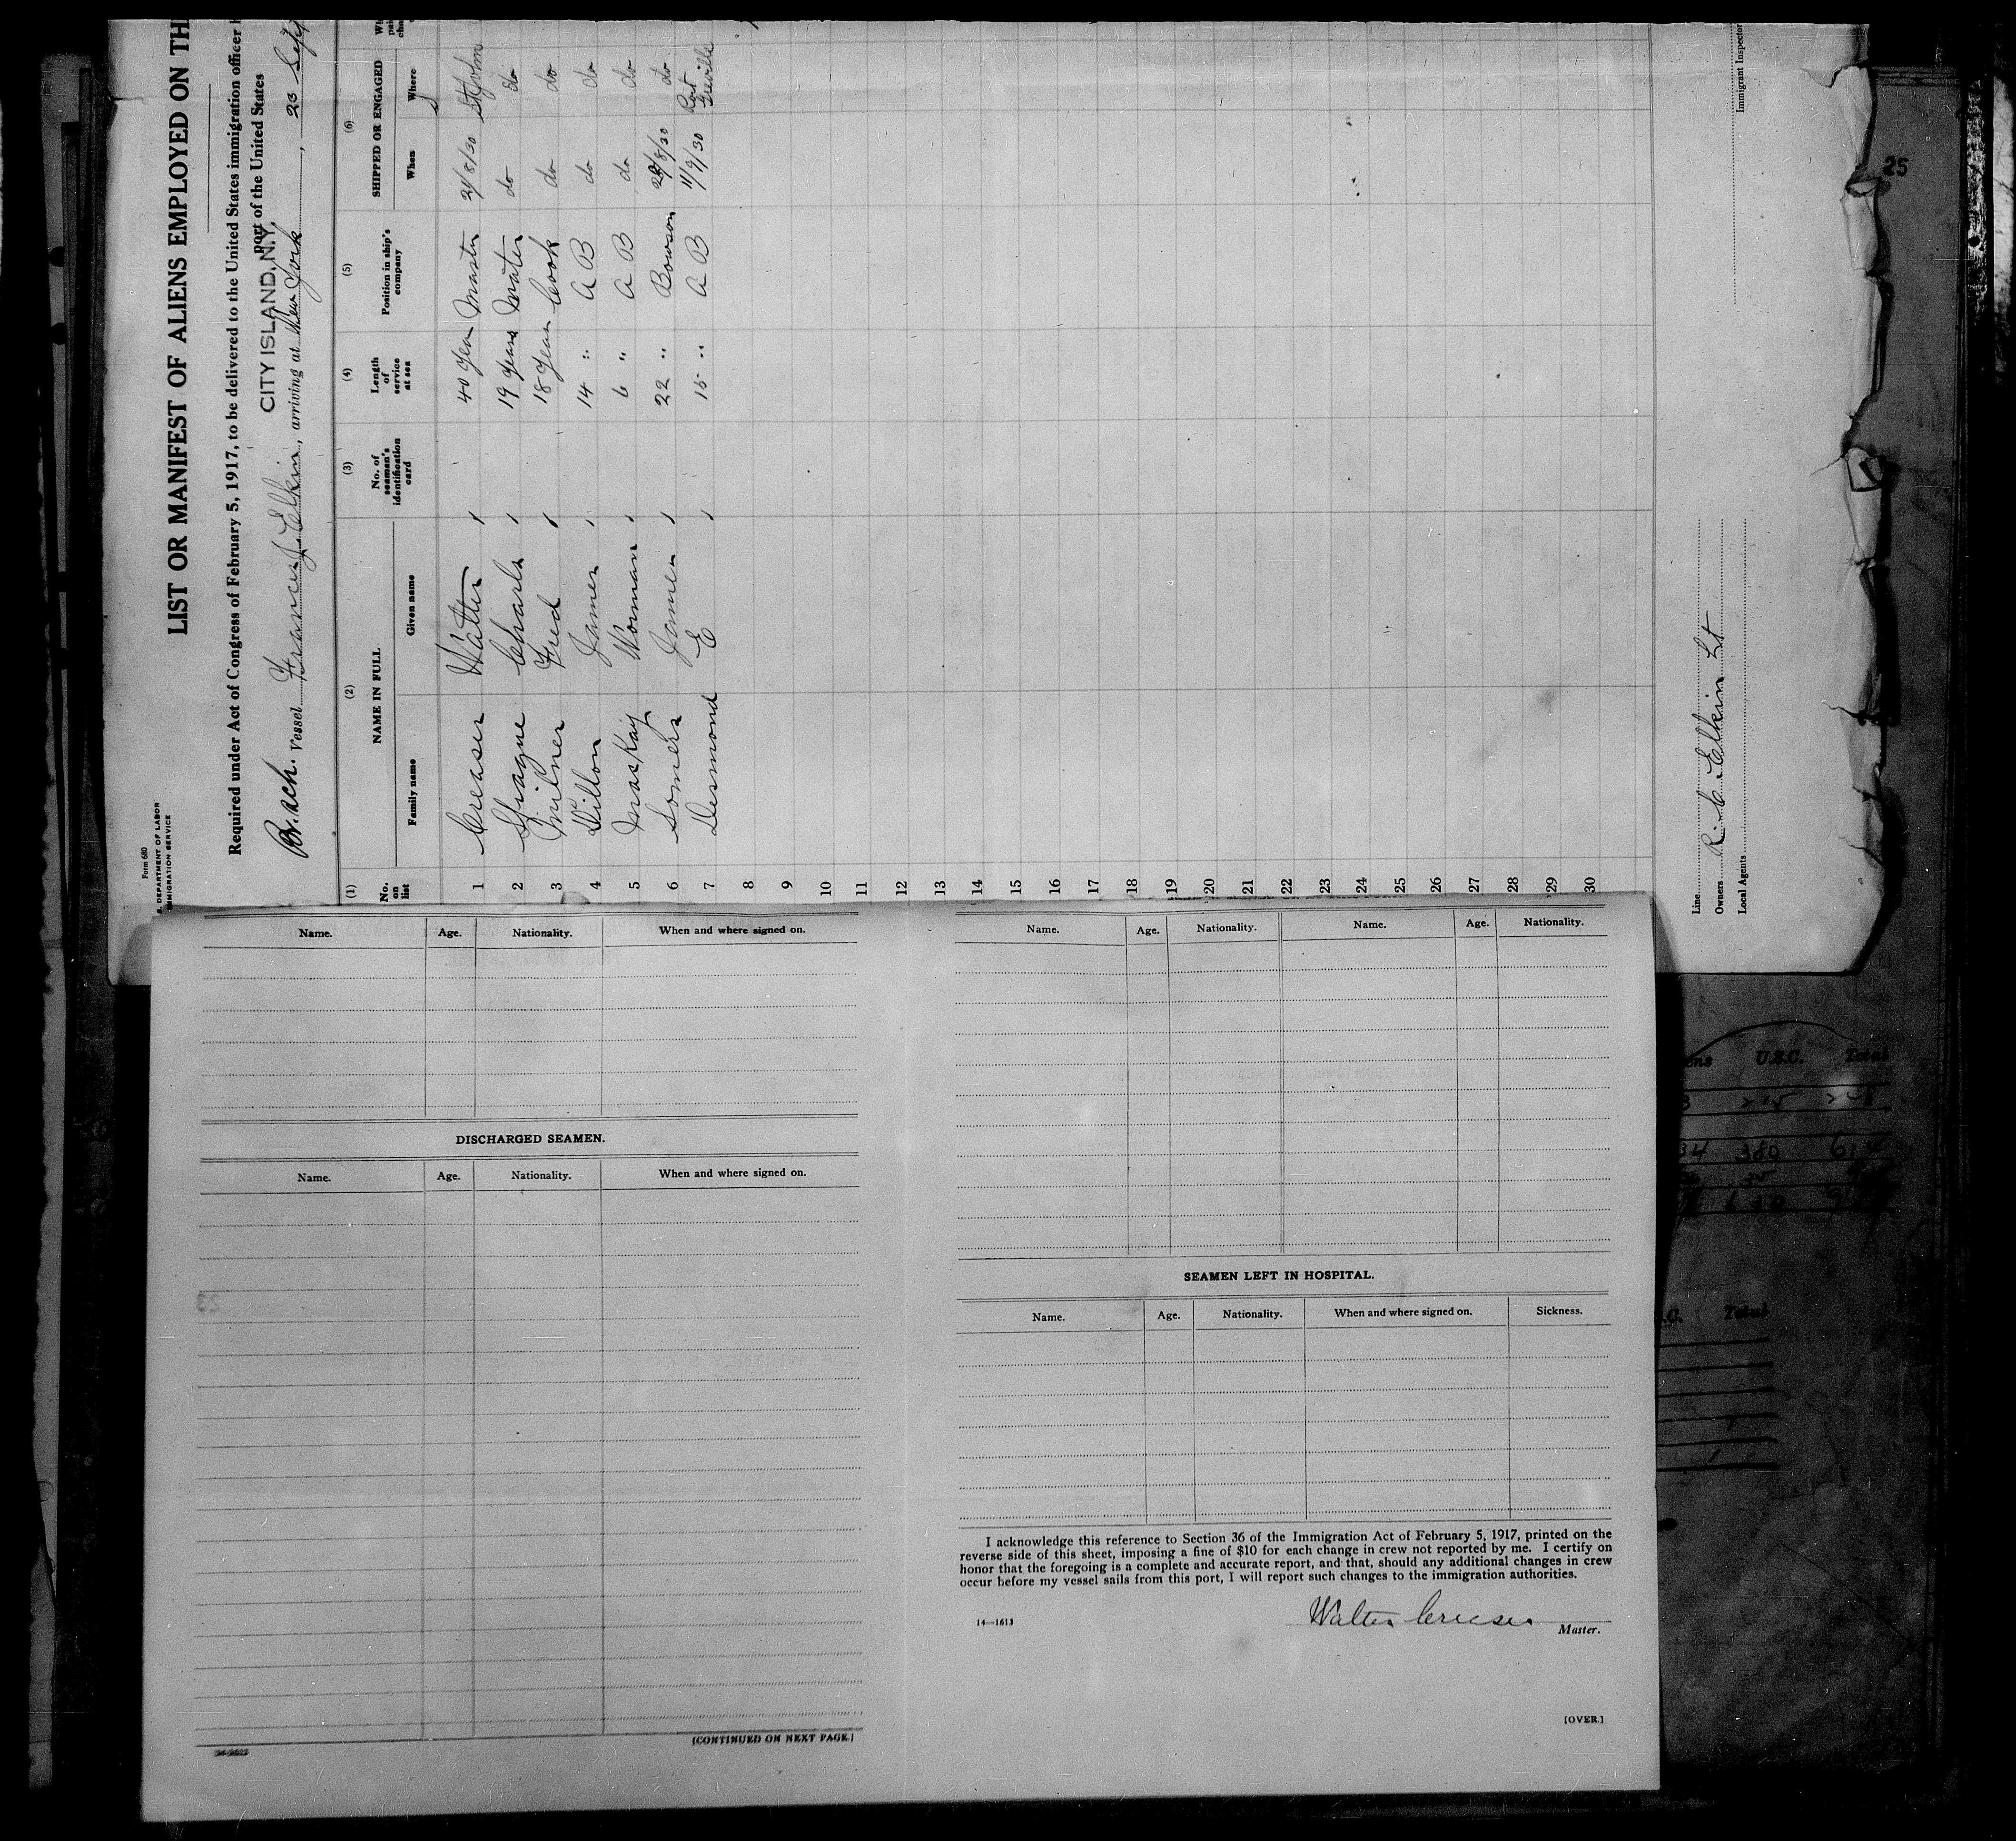 Form 680
DEPARTMENT OF LABOR
IMMIGRATION SERVICE
LIST OR MANIFEST OF ALIENS EMPLOYED ON TH
Required under Act of Congress of February 5, 1917, to be delivered to the United States immigration officer
port of the United States
CITY ISLAND, N.Y.
Br. sch. Vessel Francis J. Elkin, arriving at New York, 23 Sept
(1) (2) (3) (4) (5) (6)
No. on list NAME IN FULL No. of seaman's identification card Length of service at sea Position in ship's company SHIPPED OR ENGAGED
Family name Given name When Where
1 Creaser Walter 40 year Master 21/8/30
2 Charls 19 years Mate do do
3 Milner Fred 18 year Cook do do
4 Dillon James 14 " A B do do
5 Norman 6 " A B do do
6 Somers James 22 " Bowson /8/30 do
7 Desmond E 15 " A B 11/9/30 Port Greville
8
9
10
11
12
13
14
15
16
17
18
19
20
21
22
23
24
25
26
27
28
29
30
Line
Owners R. C. Elkin Lt
Local Agents
Immigrant Inspector
25
Name. Age. Nationality. When and where signed on.
DISCHARGED SEAMEN.
Name. Age. Nationality. When and where signed on.
23
(CONTINUED ON NEXT PAGE.)
Name. Age. Nationality. Name. Age. Nationality.
SEAMEN LEFT IN HOSPITAL.
Name. Age. Nationality. When and where signed on. Sickness.
I acknowledge this reference to Section 36 of the Immigration Act of February 5, 1917, printed on the
reverse side of this sheet, imposing a fine of $10 for each change in crew not reported by me. I certify on
honor that the foregoing is a complete and accurate report, and that, should any additional changes in crew
occur before my vessel sails from this port, I will report such changes to the immigration authorities.
14—1613
Walter Creaser
Master.
[OVER.]
U.S.C. Total
34 380
630
Total